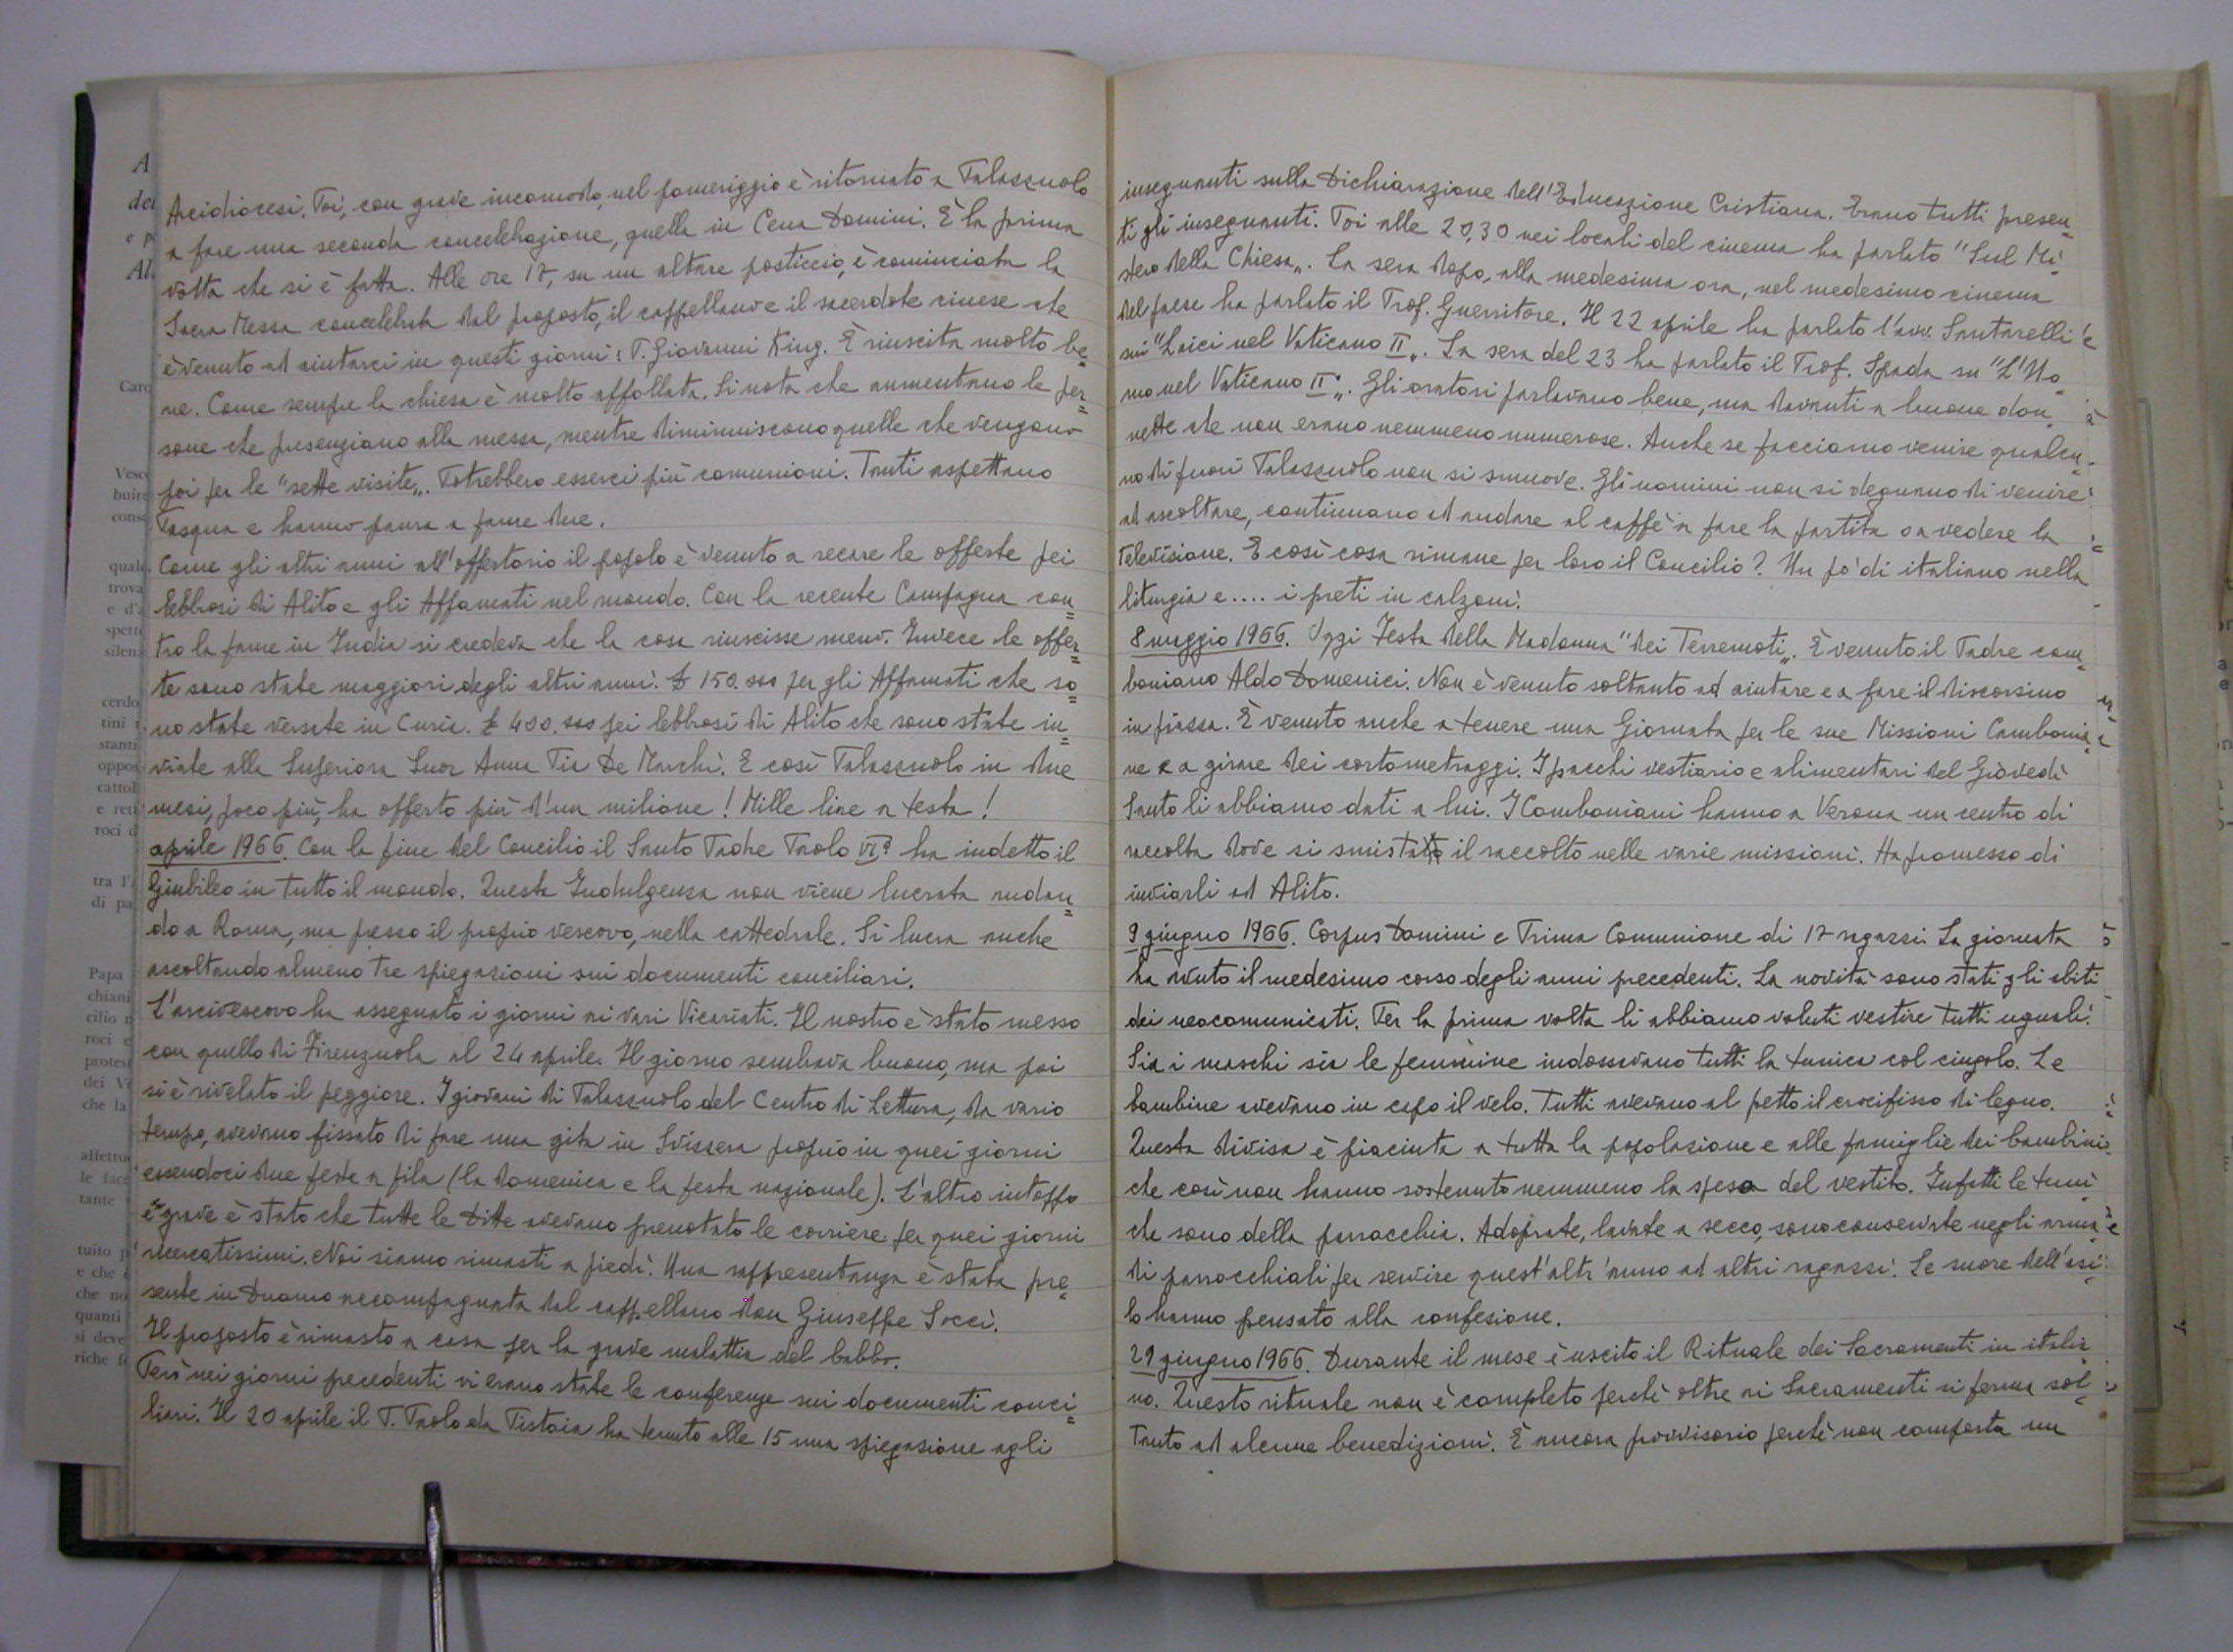 Arcidiocesi. Poi, con grave incomodo, nel pomeriggio è ritornato a Palazzuolo
a fare una seconda concelebrazione, quella in Cena Domini. È la prima
volta che si è fatta. Alle ore 17, su un altare posticcio, è cominciata la
Sacra Messa concelebrata dal proposto, il cappellano e il sacerdote cinese che
è venuto ad aiutarci in questi giorni: P. Giovanni King. È riuscita molto be=
ne. Come sempre la chiesa è molto affollata. Si nota che aumentano le per=
sone che presenziano alla messa, mentre diminuiscono quelle che vengono
poi per le "sette visite„. Potrebbero esserci più comunioni. Tanti aspettano
Pasqua e hanno paura a farne due.
Come gli altri anni all'offertorio il popolo è venuto a recare le offerte pei
lebbrosi di Alito e gli Affamati nel mondo. Con la recente Campagna con=
tro la fame in India si credeva che la cosa riuscisse meno. Invece le offer=
te sono state maggiori degli altri anni. £ 150.000 per gli Affamati che so=
no state versate in Curia. £ 400.000 pei lebbrosi di Alito che sono state in=
viate alla Superiora Suor Anna Pia De Marchi. E così Palazzuolo in due
mesi, poco più, ha offerto più d'un milione! Mille lire a testa!
aprile 1966. Con la fine del Concilio il Santo Padre Paolo VI° ha indetto il
Giubileo in tutto il mondo. Questa Indulgenza non viene lucrata andan=
do a Roma, ma presso il proprio vescovo, nella cattedrale. Si lucra anche
ascoltando almeno tre spiegazioni sui documenti conciliari.
L'arcivescovo ha assegnato i giorni ai vari Vicariati. Il nostro è stato messo
con quello di Firenzuola al 24 aprile. Il giorno sembrava buono, ma poi
si è rivelato il peggiore. I giovani di Palazzuolo del Centro di Lettura, da vario
tempo, avevano fissato di fare una gita in Svizzera proprio in quei giorni
essendoci due feste a fila (la domenica e la festa nazionale). L'altro intoppo
grave è stato che tutte le Ditte avevano prenotato le corriere per quei giorni
ricercatissimi. Noi siamo rimasti a piedi. Una rappresentanza è stata pre=
sente in Duomo accompagnata dal cappellano don Giuseppe Socci.
Il proposto è rimasto a casa per la grave malattia del babbo.
Però nei giorni precedenti vi erano state le conferenze sui documenti conci=
liari. Il 20 aprile il P. Paolo da Pistoia ha tenuto alle 15 una spiegazione agli
insegnanti sulla Dichiarazione dell'Educazione Cristiana. Erano tutti presen=
ti gli insegnanti. Poi alle 20,30 nei locali del cinema ha parlato "Sul Mi=
stero della Chiesa„. La sera dopo, alla medesima ora, nel medesimo cinema
del paese ha parlato il Prof. Guerritore. Il 22 aprile ha parlato l'avv. Santarelli
sui "Laici nel Vaticano II„. La sera del 23 ha parlato il Prof. Spada su "L'Uo=
mo nel Vaticano II„. Gli oratori parlavano bene, ma davanti a buone don=
nette che non erano nemmeno numerose. Anche se facciamo venire qualcu=
no di fuori Palazzuolo non si smuove. Gli uomini non si degnano di venire
ad ascoltare, continuano ad andare al caffè a fare la partita o a vedere la
televisione. E così cosa rimane per loro il Concilio? Un po' di italiano nella
liturgia e.... i preti in calzoni.
8 maggio 1966. Oggi Festa della Madonna "dei Terremoti„. È venuto il Padre com=
boniano Aldo Domenici. Non è venuto soltanto ad aiutare e a fare il discorsino
in piazza. È venuto anche a tenere una Giornata per le sue Missioni Combonia=
ne e a girare dei cortometraggi. I pacchi vestiario e alimentari del Giovedì
Santo li abbiamo dati a lui. I Comboniani hanno a Verona un centro di
raccolta dove si smista il raccolto nelle varie missioni. Ha promesso di
inviarli ad Alito.
9 giugno 1966. Corpus Domini e Prima Comunione di 17 ragazzi. La giornata
ha avuto il medesimo corso degli anni precedenti. La novità sono stati gli abiti
dei neocomunicati. Per la prima volta li abbiamo voluti vestire tutti uguali.
Sia i maschi sia le femmine indossavano tutti la tunica col cingolo. Le
bambine avevano in capo il velo. Tutti avevano al petto il crocifisso di legno.
Questa divisa è piaciuta a tutta la popolazione e alle famiglie dei bambini
che così non hanno sostenuto nemmeno la spesa del vestito. Infatti le tuni=
che sono della parrocchia. Adoprate, lavate a secco, sono conservate negli arma=
di parrocchiali per servire quest'altr'anno ad altri ragazzi. Le suore dell'asi=
lo hanno pensato alla confesione.
29 giugno 1966. Durante il mese è uscito il Rituale dei Sacramenti in italia=
no. Questo rituale non è completo perché oltre ai Sacramenti si ferma sol=
tanto ad alcune benedizioni. È ancora provvisorio perché non comporta un